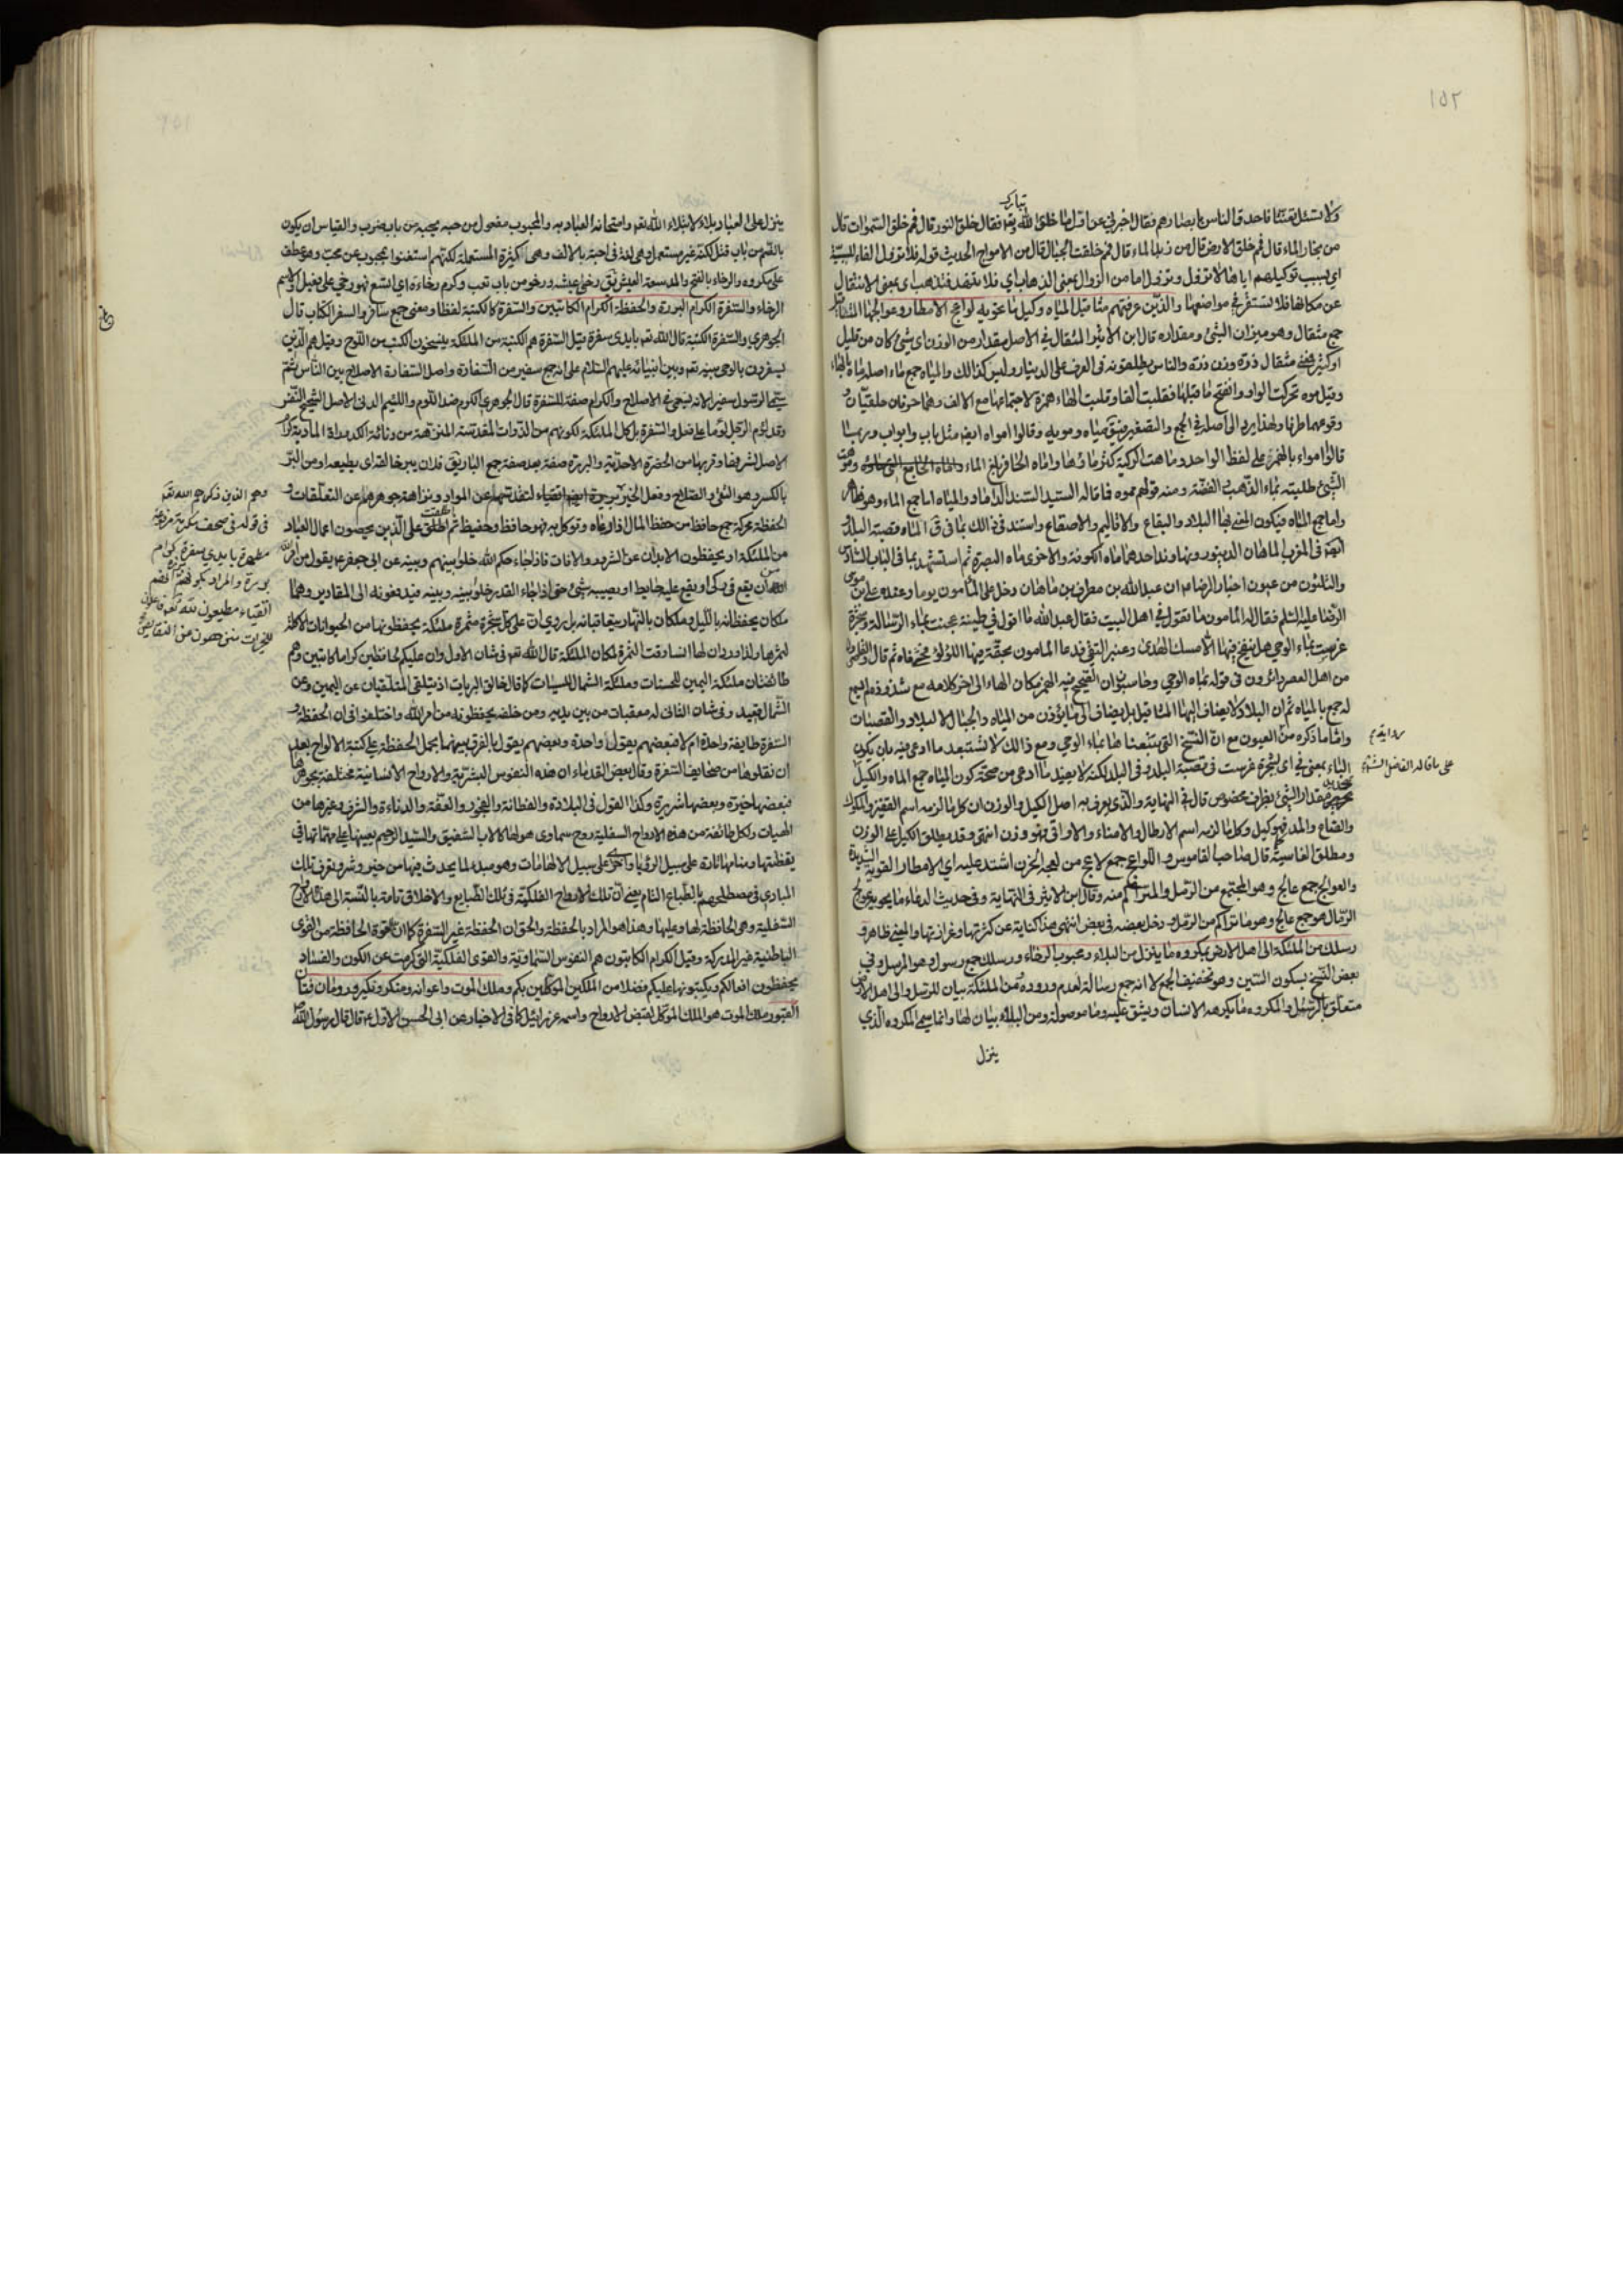 ١٥٢
تبارك
ولا تسئل تعنتا فاحدق الناس بابصارهم فقال اخبرني عن اول ما خلق الله تعـ فقال خلق النور قال فمم خلق السموات قال
من بخار الماء قال فمم خلق الارض قال من زبد الماء قال فمم خلقت الجبال قال من الامواج الحديث قوله فلا تزول الفاء للسببية
اي بسبب توكيلهم اياها لا تزول وتزول اما من الزوال بمعنى الذهاب اي فلا تذهب او بمعنى الانتقال
عن مكانها فلا تستقر في مواضعها والذين عرفتهم مثاقيل المياه وكيل ما تحويه لواعج الامطار وعوالجها المثاقيل
جمع مثقال وهو ميزان الشئ ومقداره قال ابن الاثير المثقال في الاصل مقدار من الوزن اي شئ كان من قليل
او كثير فمعنى مثقال ذرة وزن ذرة والناس يطلقونه في العرف على الدينار وليس كذالك والمياه جمع ماء اصله ماه بالهاء
وقيل موه تحركت الواو وانفتح ما قبلها فقلبت الفا وقلبت الهاء همزة لاجتماعها مع الالف وهما حرفان حلقيان و
وقوعهما طرفا ولهذا يرد الى اصله في الجمع والتصغير فيق مياه ومويه وقالوا امواه ايضا مثل باب وابواب وربما
قالوا امواء بالهمز على لفظ الواحد وماهت الركية كثر ماؤها واماه الحافر بلغ الماء
الشئ طليته بماء الذهب والفضة ومنه قولهم مموه فما قاله السيد السند الداماد والمياه اما جمع الماء وهو ظاهر
واما جمع الماه فيكون المعنى بها البلاد والبقاع والاقاليم والاصقاع واستند في ذالك بما في ق الماه قصبة البلد
في المغرب الماهان الدينور ونهاوند احدهما ماه الكوفة والاخرى ماه البصرة ثم استشهد بما في الباب الثاني
والثلثون من عيون اخبار الرضا ان عبدالله بن مطرف بن ماهان دخل على المأمون يوما وعنده علي بن موسى
الرضا عليه السلام فقال له المأمون ما تقول في اهل البيت فقال عبدالله ما اقول في طينة عجنت بماء الرسالة وشجرة
غرست بماء الوحي هل ينفخ منها الا مسك الهدى وعنبر التقى فدعا المأمون بحقة فيها اللؤلؤ فحشى فاه ثم قال
من اهل العصر دائرون في قوله بماه الوحي وخاسبون ان الفتح فيه الهمز مكان الهاء الى اخر كلامه مع شذوذ
له جمع بالمياه ثم ان البلاد لا يضاف اليها المثاقيل بل يضاف الى ما يوزن من المياه والجبال لا البلاد والقصبات
واما ما ذكره من العيون مع ان النسخ التي تتبعناها بماء الوحي ومع ذالك لا نستبعد ما ادعى فيه بان يكون
الباء بمعنى في اي شجرة غرست في قصبة البلد وفي البلد لكنه لا يفيد ما ادعى من صحة كون المياه جمع الماه والكيل
مقدار الشئ بظرف مخصوص قال في النهاية والذي يعرف به اصل الكيل والوزن ان كل ما لزمه اسم القفيز والمكوك
والصاع والمد فهو كيل وكل ما لزمه اسم الارطال والامناء والاواقي فهو وزن انتهى وقد يطلق الكيل على الوزن
ومطلق المقاسية قال صاحب القاموس واللواعج جمع لاعج من لعجه الحزن اشتد عليه اي الامطار القوية الشديدة
والعوالج جمع عالج وهو المجتمع من الرمل والمتراكم منه وقال ابن الاثير في النهاية وفي حديث الدعاء ما يحويه عوالج
الرمال هو جمع عالج وهو ما تراكم من الرمل ودخل بعضه في بعض انتهى هذا كناية عن كثرتها وغزارتها والمعنى ظاهر و
رسلك من الملئكة الى اهل الارض بمكروه ما ينزل من البلاء ومحبوب الرخاء ورسلك جمع رسول وهو المرسل وفي
بعض النسخ بسكون السين وهو تخفيف الجمع لا انه جمع رسالة لعدم وروده ومن الملئكة بيان للرسل والى اهل الارض
متعلق بالرسل والمكروه ما يكرهه الانسان ويشق عليه وما موصولة ومن البلاء بيان لها وانما سمي المكروه الذي
ينزل
ينزل على العباد بلاء لابتلاء الله تعـ وامتحانه العباد به والمحبوب مفعول من حبه يحبه من باب ضرب والقياس ان يكون
بالضم من باب قتل لكنه غير مستعمل وهي لغة في احبه بالالف وهي كثيرة المستعملة لكنهم استغنوا بمحبوب عن محب وهو عطف
على مكروه والرخاء بالفتح والمد سعة العيش يق رخى عيشه ورخو من باب تعب وكرم رخاءة اي اتسع فهو رخي على فعيل والاسم
الرخاء والسفرة الكرام البررة والحفظة الكرام الكاتبين والسفرة كالكتبة لفظا ومعنى جمع سافر والسفر الكتاب قال
الجوهري والسفرة الكتبة قال الله تعـ بايدي سفرة قيل السفرة هم الكتبة من الملئكة ينسخون الكتب من اللوح وقيل هم الذين
يسفرون بالوحي بينه تعـ وبين انبيائه عليهم السلام على انه جمع سفير من السفارة واصل السفارة الاصلاح بين الناس ثم
سمى الرسول سفيرا لانه يسعى في الاصلاح والكرام صفة للسفرة قال الجوهري الكرم ضد اللوم واللئيم الدنى الاصل الشحيح النفس
وقد لؤم الرجل لؤما
الاصل لشرفها وقربها من الحضرة الاحدية والبررة صفة بعد صفة جمع البار يق فلان يبر خالقه اي يطيعه او من البر
بالكسر وهو التقى والصلاح وفعل الخير لتقدسهم عن المواد ونزاهة جوهرهم عن التعلقات و
الحفظة محركة جمع حافظ من حفظ المال اذا رعاه وتوكل به فهو حافظ وحفيظ ثم اطلقت على الذين يحصون اعمال العباد
من الملئكة او يحفظون الابدان عن الشرور والافات فاذا جاء حكم الله خلوا بينهم وبينه عن ابي جعفر ع يقول من امر الله
من ان يقع في ركى او يقع عليه حايط او يصيبه شئ حتى اذا جاء القدر خلوا بينه وبينه فيدفعونه الى المقادير وهما
ملكان يحفظانه بالليل وملكان بالنهار يتعاقبانه بل روي ان على كل شجرة مثمرة ملئكة يحفظونها من الحيوانات الاكلة
لثمرها ولذا ورد ان لها انسا وقت الثمرة لمكان الملئكة قال الله تعـ في شان الاول وان عليكم لحافظين كراما كاتبين وهم
طائفتان ملئكة اليمين للحسنات وملئكة الشمال للسيئات كما قال خالق البريات اذ يتلقى المتلقيان عن اليمين وعن
الشمال قعيد وفي شان الثاني له معقبات من بين يديه ومن خلفه يحفظونه من امر الله واختلفوا في ان الحفظة و
السفرة طايفة واحدة ام لا فبعضهم يقول واحدة وبعضهم يقول بالفرق بينهما بحمل الحفظة على كتبة الالواح بعد
ان نقلوها من صحايف السفرة وقال بعض القدماء ان هذه النفوس البشرية والارواح الانسانية مختلفة بجوهرها
فبعضها خيرة وبعضها شريرة وكذا القول في البلادة والفطانة والفجور والعفة والدناءة والشرف وغيرها من
الهيات ولكل طائفة من هذه الارواح السفلية روح سماوى هو لها كالاب الشفيق والسيد الرحيم يعينها على مهماتها في
يقظتها ومنامها تارة على سبيل الرؤيا واخرى على سبيل الالهامات وهو مبدء لما يحدث فيها من خير وشر وتعرف تلك
المبادي في مصطلحهم بالطباع التام يعني ان تلك الارواح الفلكية في تلك الطبايع والاخلاق تامة بالنسبة الى هذه الارواح
السفلية وهي الحافظة لها وعليها وهذا هو المراد بالحفظة والحق ان الحفظة غير السفرة كما ان القوة الحافظة من القوى
الباطنية غير المدركة وقيل الكرام الكاتبون هم النفوس السماوية والقوى الفلكية التي كرمت عن الكون والفساد
يحفظون افعالكم ويكتبونها عليكم فضلا من الملكين الموكلين بكم وملك الموت واعوانه ومنكر ونكير ورومان فتان
القبور ملك الموت هو الملك الموكل لقبض الارواح واسمه عزرائيل كما في الاخبار عن ابي الحسن الاول ع قال قال رسول الله
وهم الذين ذكرهم الله تعـ
في قوله في صحف مكرمة مرفوعة
مطهرة بايدي سفرة كرام
بررة والمراد بكونهم بررة انهم
اتقياء مطيعون لله تعـ فاعلون
للخيرات منزهون من النقايص
على ما قاله الفاضل